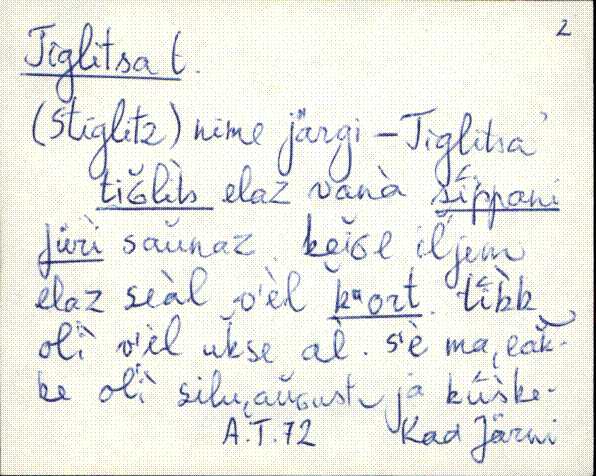 2
Tiglitsa t.
(Stiglitz) nime järgi – Tiglitsa'
tiɢlits elaz vanà sippani
jüri saŭnaz. keiɢe iljem
elaz seàl v'èl kort. tibk
oli v'èl ükse al. s'è ma,
ke oli silu,auɢust ja
A.T.72 Kad Järni